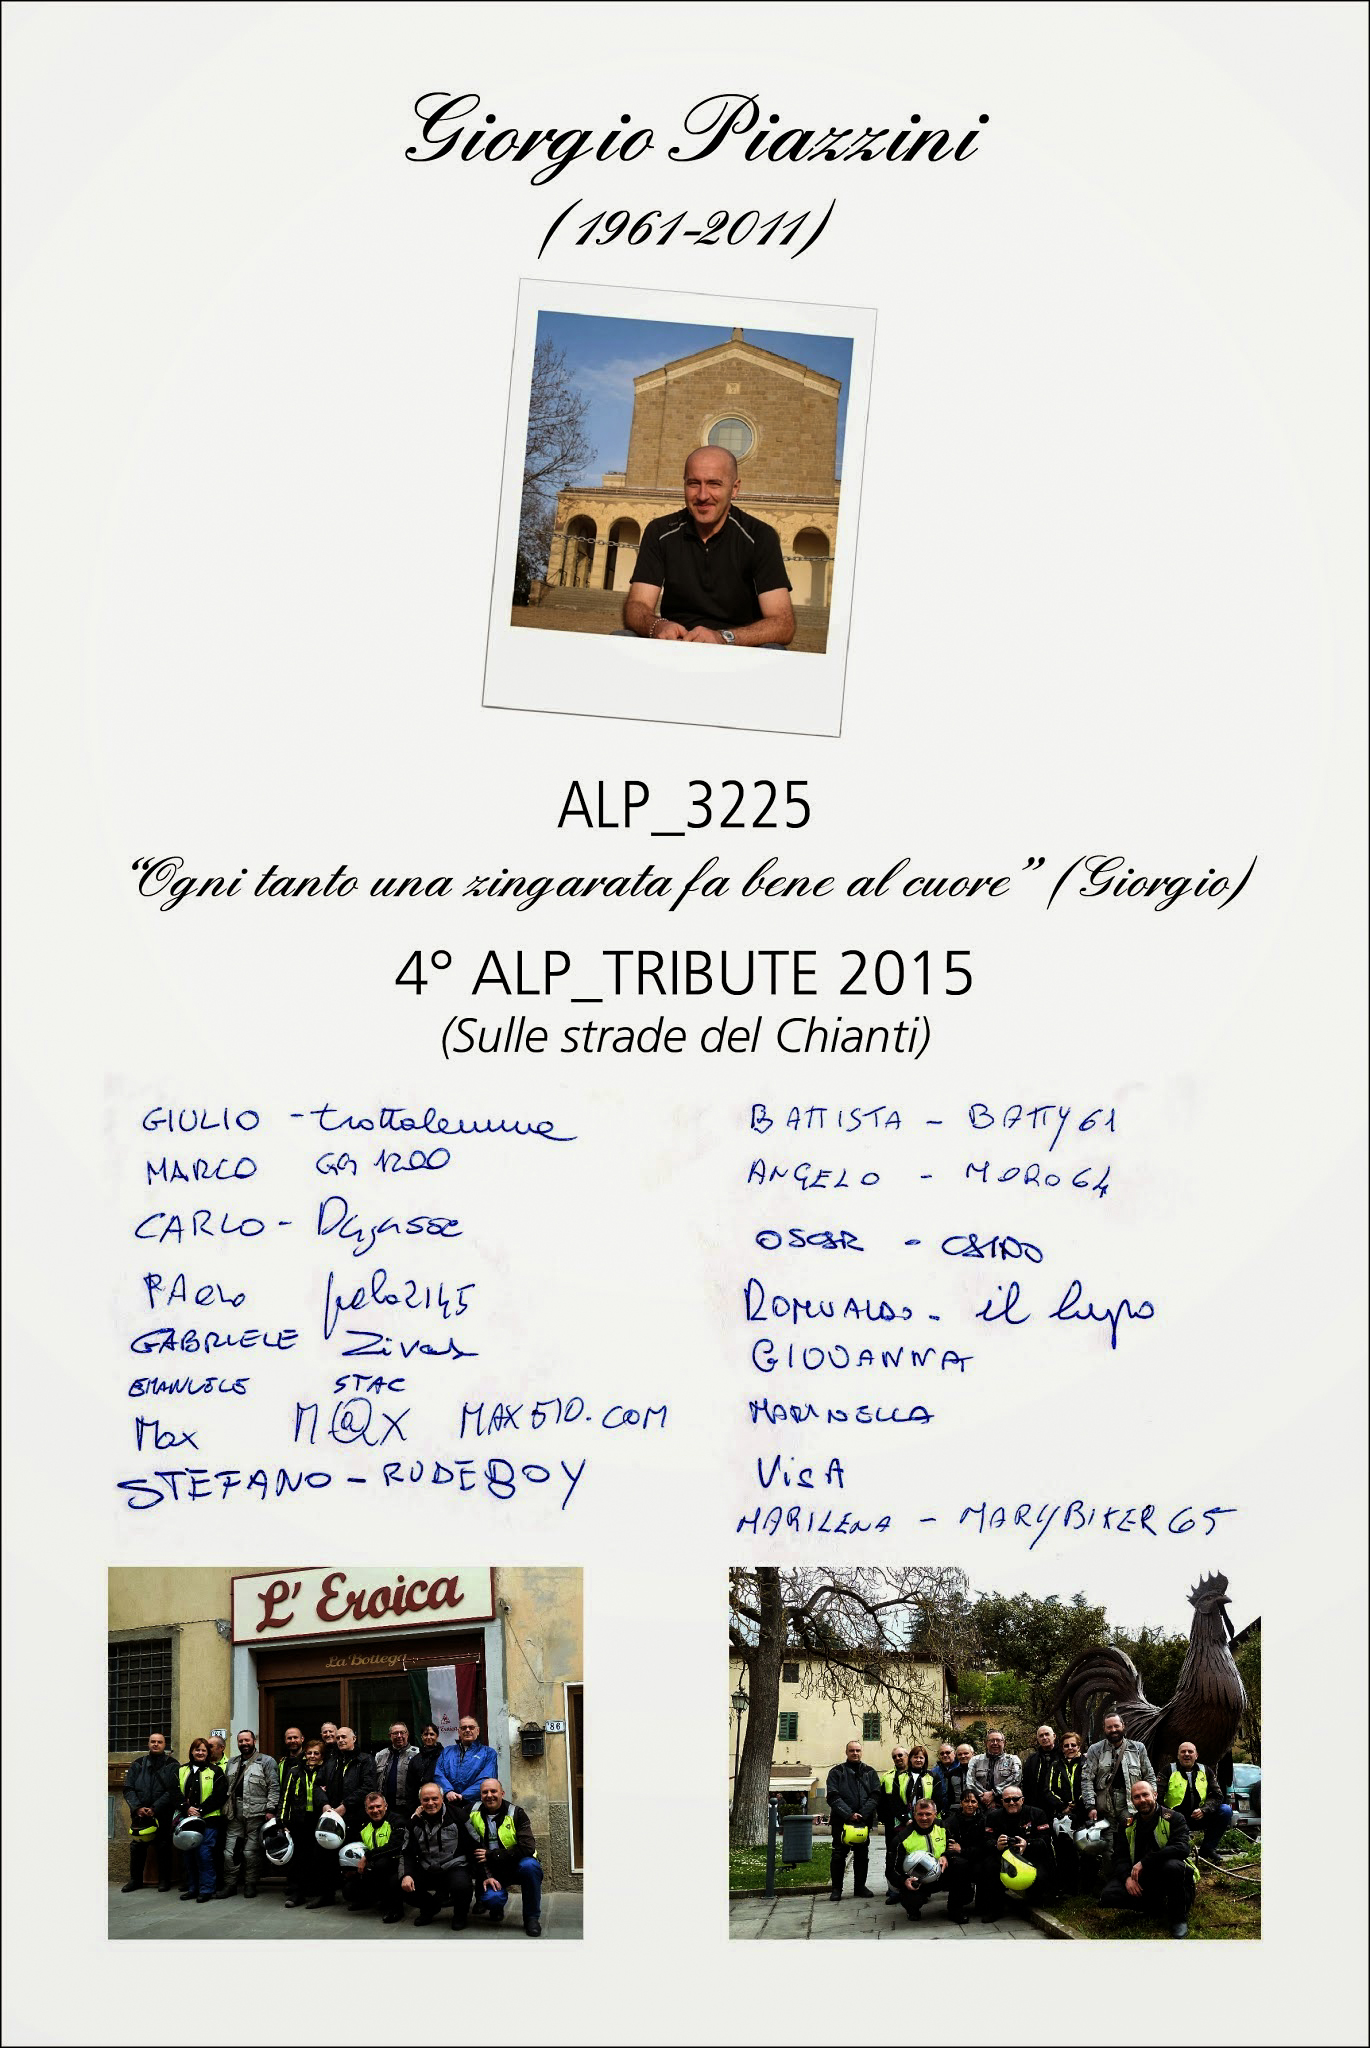 Giorgio Piazzini
(1961-2011)
ALP_3225
"Ogni tanto una zingarata fa bene al cuore" (Giorgio)
4° ALP_TRIBUTE 2015
(Sulle strade del Chianti)
GIULIO - trottalemme
MARCO GG 1200
CARLO -
PAOLO
GABRIELE
EMANUELE STAC
Max M@X MAX510.COM
STEFANO - RUDEBOY
BATTISTA - BATTY61
ANGELO - MORO64
OSCAR -
ROMUALDO - il lupo
GIOVANNA
MARINELLA
VisA
MARILENA - MARYBIKER65
L' Eroica
La Bottega
86